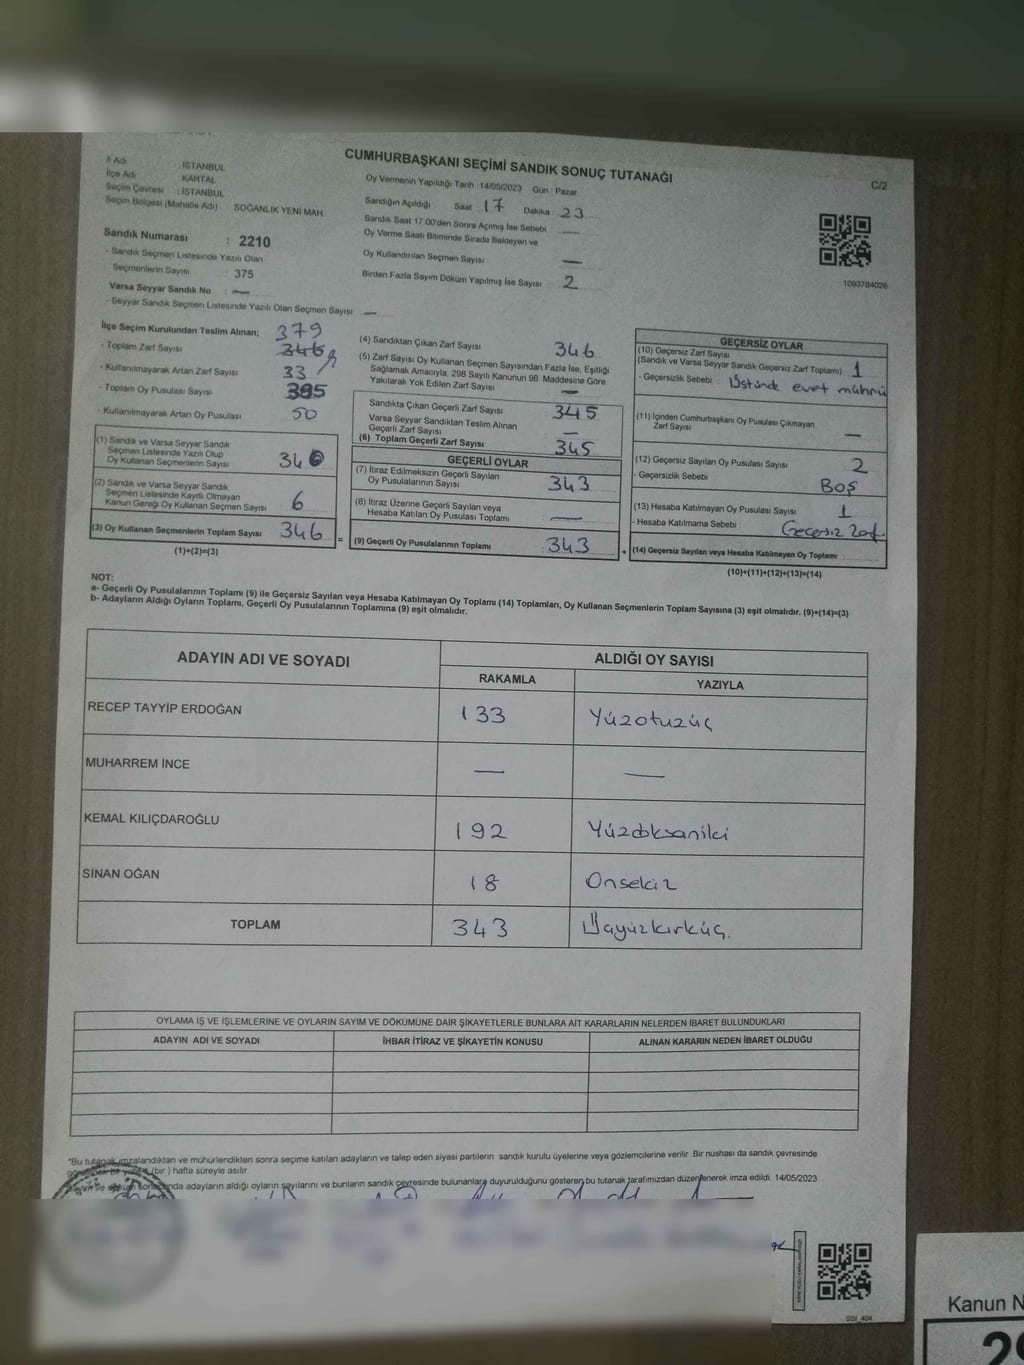 CUMHURBAŞKANI SEÇİMİ SANDIK SONUÇ TUTANAĞI
C/2
İl Adı : İSTANBUL
İlçe Adı : KARTAL
Seçim Çevresi : İSTANBUL
Seçim Bölgesi (Mahalle Adı) SOĞANLIK YENİ MAH.
Sandık Numarası : 2210
- Sandık Seçmen Listesinde Yazılı Olan
Seçmenlerin Sayısı : 375
Varsa Seyyar Sandık No : —
- Seyyar Sandık Seçmen Listesinde Yazılı Olan Seçmen Sayısı —
Oy Vermenin Yapıldığı Tarih : 14/05/2023 Gün : Pazar
Sandığın Açıldığı Saat 17 Dakika : 23
Sandık Saat 17.00'den Sonra Açılmış İse Sebebi —
Oy Verme Saati Bitiminde Sırada Bekleyen ve
Oy Kullandırılan Seçmen Sayısı —
Birden Fazla Sayım Döküm Yapılmış İse Sayısı 2
1093784026
İlçe Seçim Kurulundan Teslim Alınan; 379
- Toplam Zarf Sayısı 346
- Kullanılmayarak Artan Zarf Sayısı 33
- Toplam Oy Pusulası Sayısı 395
- Kullanılmayarak Artan Oy Pusulası 50
(1) Sandık ve Varsa Seyyar Sandık
Seçmen Listesinde Yazılı Olup
Oy Kullanan Seçmenlerin Sayısı 340
(2) Sandık ve Varsa Seyyar Sandık
Seçmen Listesinde Kayıtlı Olmayan
Kanun Gereği Oy Kullanan Seçmen Sayısı : 6
(3) Oy Kullanan Seçmenlerin Toplam Sayısı : 346
(1)+(2)=(3)
(4) Sandıktan Çıkan Zarf Sayısı 346
(5) Zarf Sayısı Oy Kullanan Seçmen Sayısından Fazla İse, Eşitliği
Sağlamak Amacıyla, 298 Sayılı Kanunun 98. Maddesine Göre
Yakılarak Yok Edilen Zarf Sayısı —
Sandıkta Çıkan Geçerli Zarf Sayısı 345
Varsa Seyyar Sandıktan Teslim Alınan
Geçerli Zarf Sayısı —
(6) Toplam Geçerli Zarf Sayısı 345
GEÇERLİ OYLAR
(7) İtiraz Edilmeksizin Geçerli Sayılan
Oy Pusulalarının Sayısı : 343
(8) İtiraz Üzerine Geçerli Sayılan veya
Hesaba Katılan Oy Pusulası Toplamı : —
=
(9) Geçerli Oy Pusulalarının Toplamı : 343
+
GEÇERSİZ OYLAR
(10) Geçersiz Zarf Sayısı
(Sandık ve Varsa Seyyar Sandık Geçersiz Zarf Toplamı) : 1
- Geçersizlik Sebebi : Üstünde evet mührü
(11) İçinden Cumhurbaşkanı Oy Pusulası Çıkmayan
Zarf Sayısı —
(12) Geçersiz Sayılan Oy Pusulası Sayısı 2
- Geçersizlik Sebebi Boş
(13) Hesaba Katılmayan Oy Pusulası Sayısı 1
- Hesaba Katılmama Sebebi Geçersiz Zarf
(14) Geçersiz Sayılan veya Hesaba Katılmayan Oy Toplamı :
(10)+(11)+(12)+(13)=(14)
NOT:
a- Geçerli Oy Pusulalarının Toplamı (9) ile Geçersiz Sayılan veya Hesaba Katılmayan Oy Toplamı (14) Toplamları, Oy Kullanan Seçmenlerin Toplam Sayısına (3) eşit olmalıdır. (9)+(14)=(3)
b- Adayların Aldığı Oyların Toplamı, Geçerli Oy Pusulalarının Toplamına (9) eşit olmalıdır.
ADAYIN ADI VE SOYADI ALDIĞI OY SAYISI
RAKAMLA YAZIYLA
RECEP TAYYİP ERDOĞAN 133 Yüzotuzüç
MUHARREM İNCE — —
KEMAL KILIÇDAROĞLU 192
SİNAN OĞAN 18 Onsekiz
TOPLAM 343 Üçyüzkırküç.
OYLAMA İŞ VE İŞLEMLERİNE VE OYLARIN SAYIM VE DÖKÜMÜNE DAİR ŞİKAYETLERLE BUNLARA AİT KARARLARIN NELERDEN İBARET BULUNDUKLARI
ADAYIN ADI VE SOYADI İHBAR İTİRAZ VE ŞİKAYETİN KONUSU ALINAN KARARIN NEDEN İBARET OLDUĞU
*Bu tutanak imzalandıktan ve mühürlendikten sonra seçime katılan adayların ve talep eden siyasi partilerin sandık kurulu üyelerine veya gözlemcilerine verilir. Bir nüshası da sandık çevresinde
(bir ) hafta süreyle asılır.
adayların aldığı oyların sayılarını ve bunların sandık çevresinde bulunanlara duyurulduğunu gösteren bu tutanak tarafımızdan düzenlenerek imza edildi. 14/05/2023
Kanun N